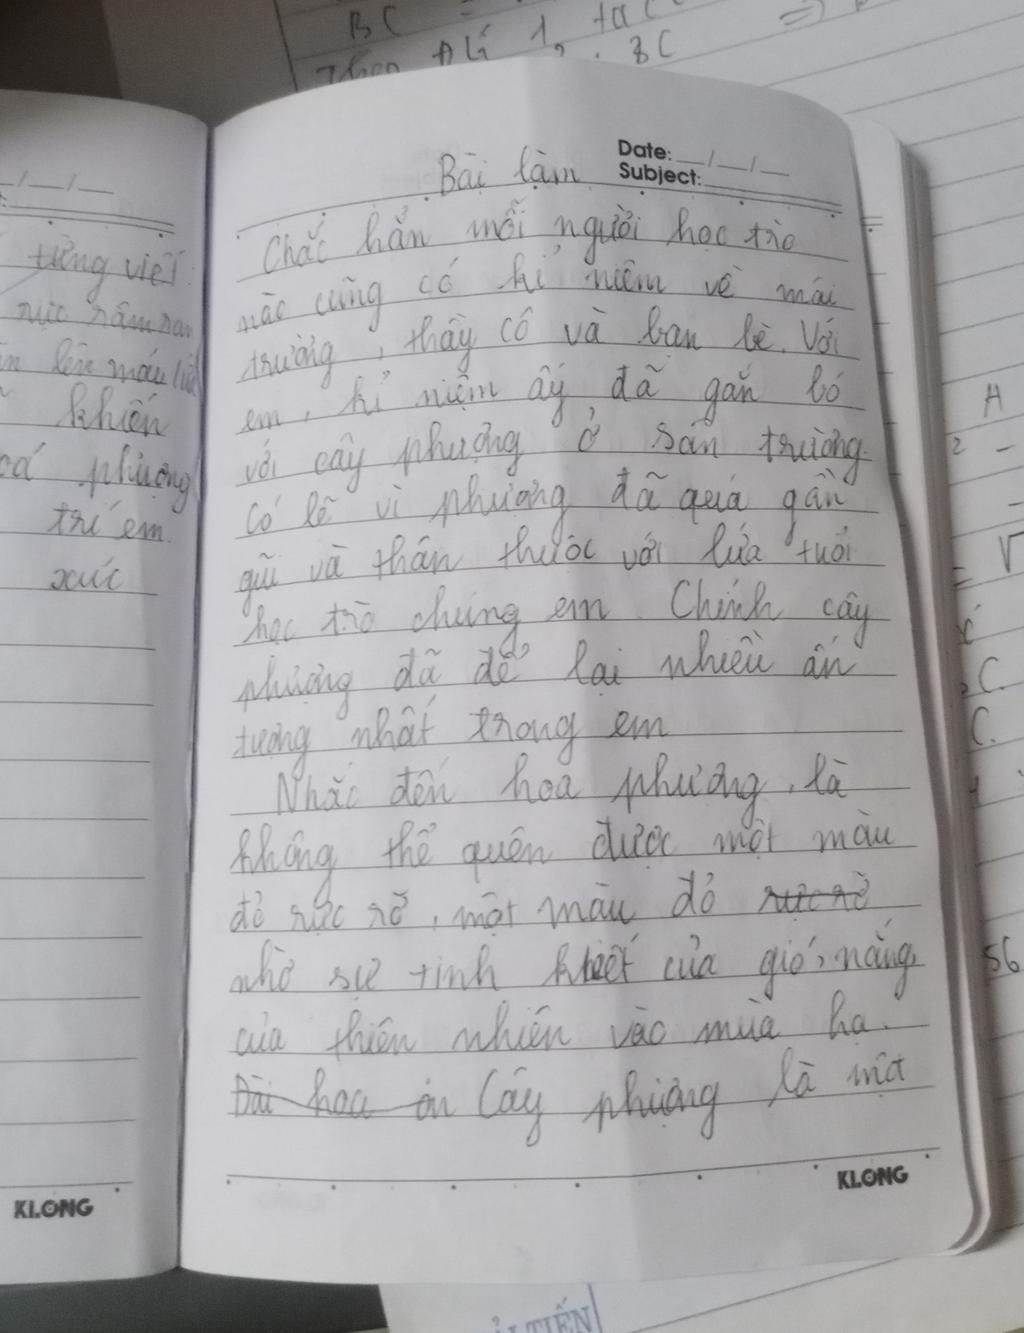 BC
A lí 1, ta c
BC
Date: __/__/__
Subject:
Bài làm
Chắc hẳn mỗi người học trò
nào cũng có kỉ niệm về mái
trường, thầy cô và bạn bè. Với
em, kỉ niệm ấy đã gắn bó
với cây phượng ở sân trường.
Có lẽ vì phượng đã quá gần
gũi và thân thuộc với lứa tuổi
học trò chúng em. Chính cây
phượng đã để lại nhiều ấn
tượng nhất trong em
Nhắc đến hoa phượng, là
không thể quên được một màu
đỏ rực rỡ, một màu đỏ rực rỡ
nhờ sự tinh khiết của gió, nắng,
của thiên nhiên vào mùa hạ.
Đài hoa ôn Cây phượng là một
KLONG
tiếng việt
rực râm ran
lên màu
khiến
phượng
trí em.
xúc
KLONG
A
2 -
C.
C.
56
TIẾN